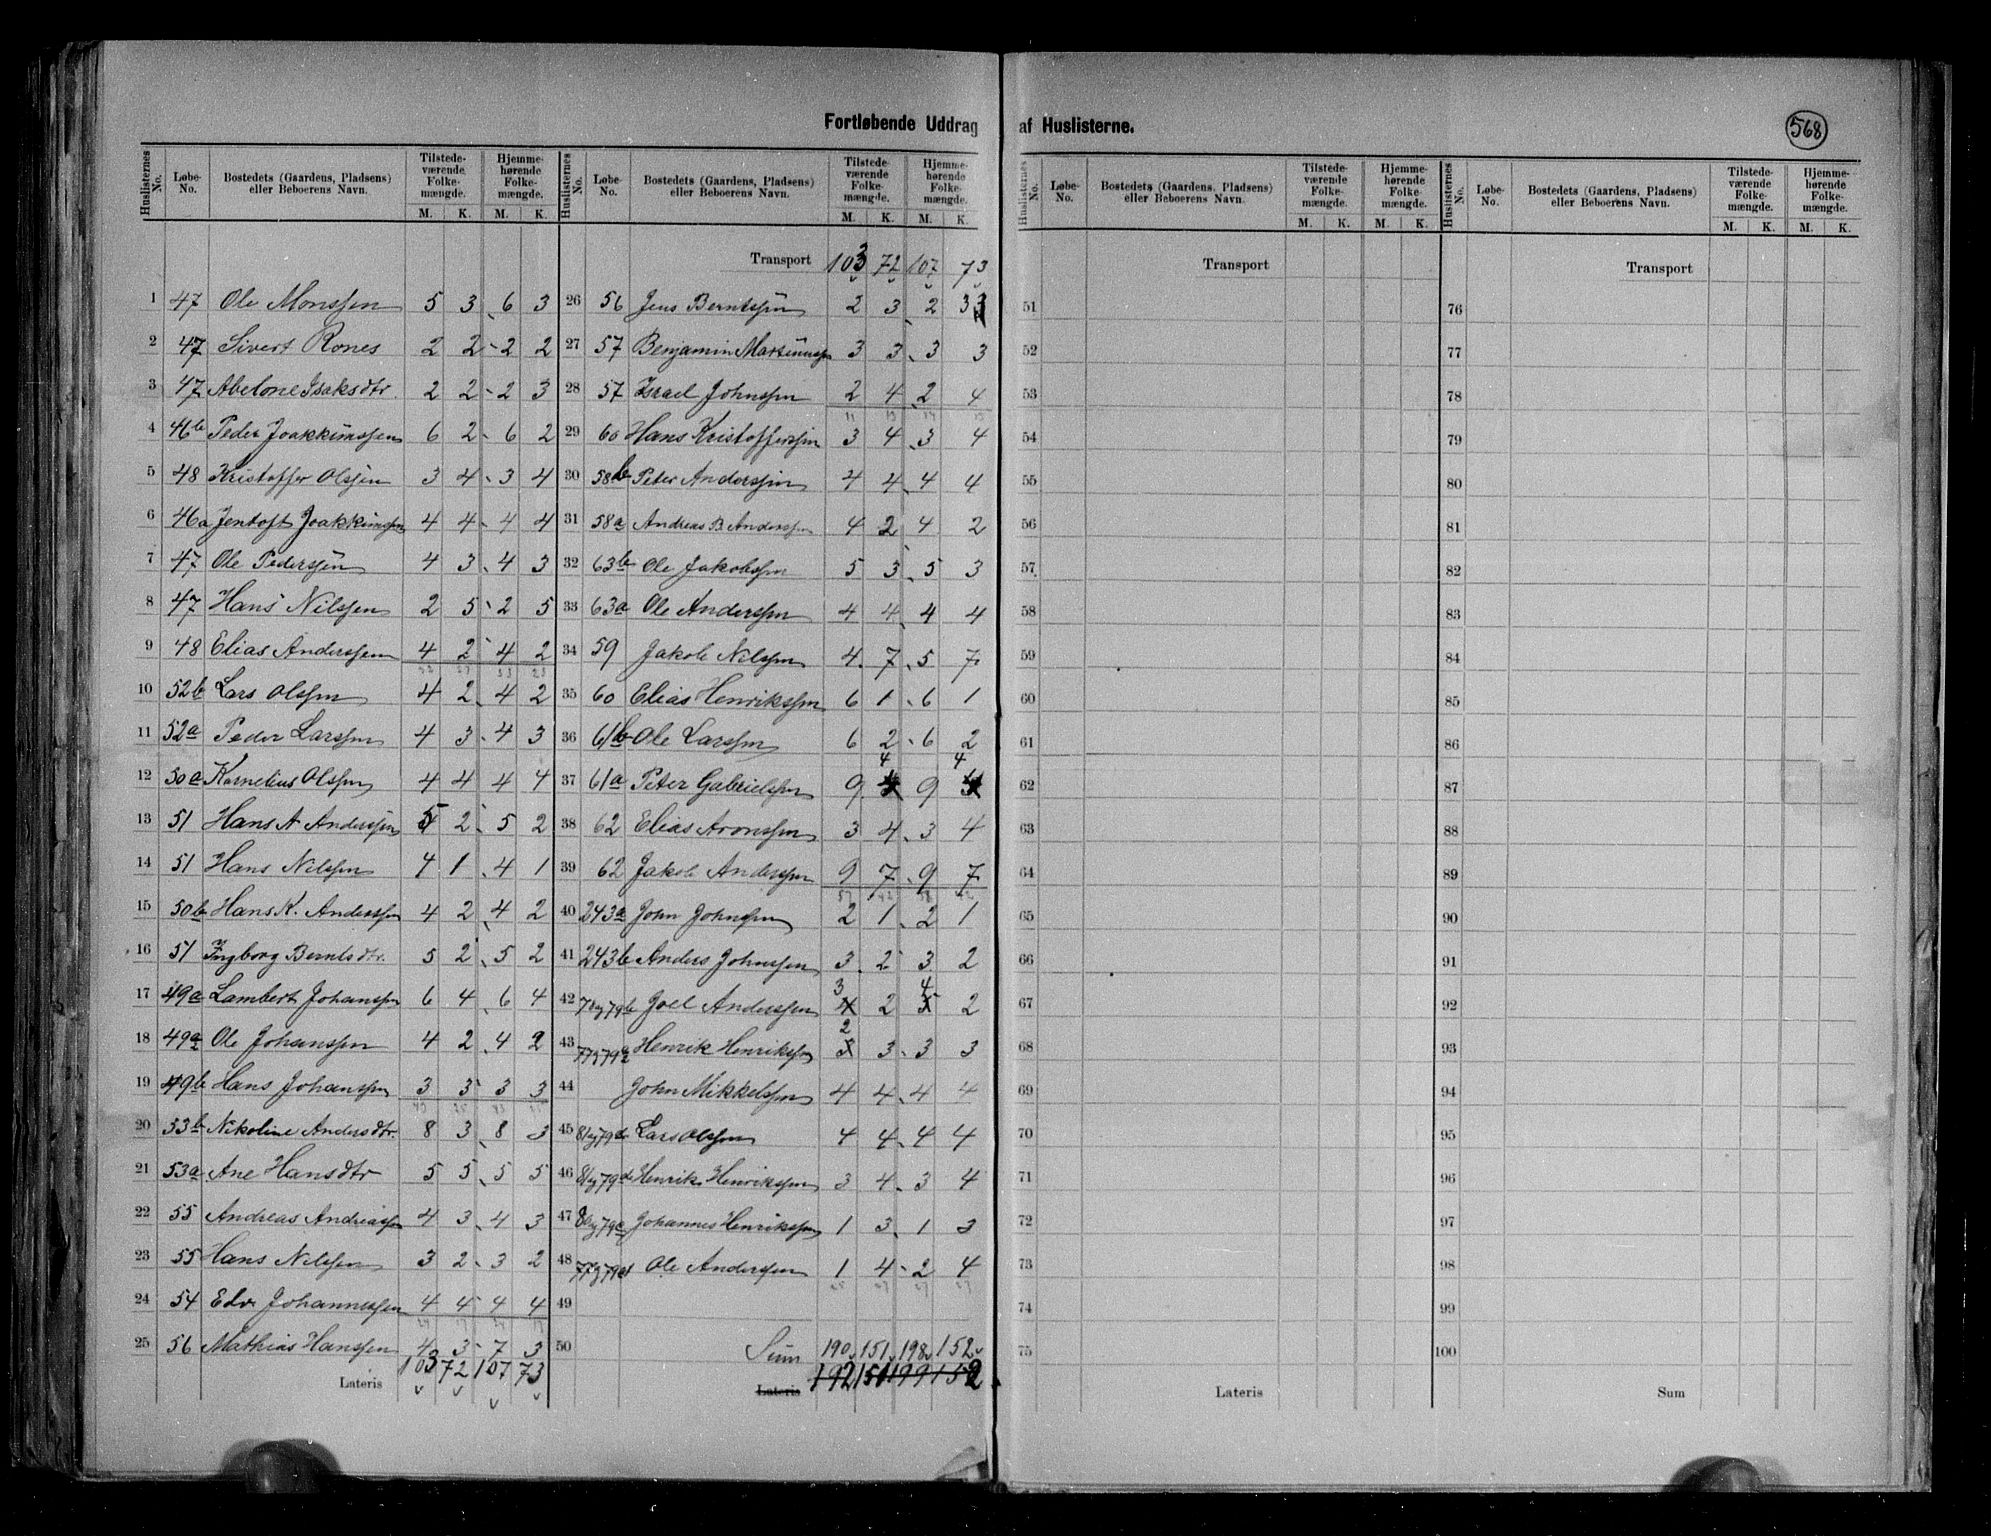 Fortløbende Uddrag af Huslisterne.
568
Huslisternes No. Løbe-No. Bostedets (Gaardens, Pladsens) eller Beboerens Navn. Tilstedeværende Folkemængde. M. K. Hjemmehørende Folkemængde. M. K.
1 47 Ole Monssen 5 3 6 3
2 47 Sivert Rones 2 2 2 2
3 47 Abelone Isaksdtr. 2 2 2 3
4 46b Peder Joakkimssen 6 2 6 2
5 48 Kristoffer Olssen 3 4 3 4
6 46a Jentoft Joakkimssen 4 4 4 4
7 47 Ole Pederssen 4 3 4 3
8 47 Hans Nilssen 2 5 2 5
9 48 Elias Anderssen 4 2 4 2
10 52b Lars Olssen 4 2 4 2
11 52a Peder Larssen 4 3 4 3
12 50a Kornelius Olssen 4 4 4 4
13 51 Hans N Anderssen 5 2 5 2
14 51 Hans Nilssen 4 1 4 1
15 50b Hans K. Anderssen 4 2 4 2
16 51 Ingborg Berntsdtr. 5 2 5 2
17 49a Lambert Johanssen 6 4 6 4
18 49a Ole Johanssen 4 2 4 2
19 49b Hans Johanssen 3 3 3 3
20 53b Nikoline Andersdtr. 8 3 8 3
21 53a Ane Hansdtr 5 5 5 5
22 55 Andreas Andreassen 4 3 4 3
23 55 Hans Nilssen 3 2 3 2
24 54 Edv. Johannessen 4 4 4 4
25 56 Mathias Hanssen 4 3 7 3
Lateris 103 72 107 73
Huslisternes No. Løbe-No. Bostedets (Gaardens, Pladsens) eller Beboerens Navn. Tilstedeværende Folkemængde. M. K. Hjemmehørende Folkemængde. M. K.
Transport 103 72 107 73
26 56 Jens Berntssen 2 3 2 3
27 57 Benjamin Martinussen 3 3 3 3
28 57 Israel Johnssen 2 4 2 4
29 60 Hans Kristofferssen 3 4 3 4
30 58b Peter Anderssen 4 4 4 4
31 58a Andreas B. Anderssen 4 2 4 2
32 63b Ole Jakobssen 5 3 5 3
33 63a Ole Anderssen 4 4 4 4
34 59 Jakob Nilssen 4 7 5 7
35 60 Elias Henrikssen 6 1 6 1
36 61b Ole Larssen 6 2 6 2
37 61a Peter Gabrielssen 9 4 9 4
38 62 Elias Aronssen 3 4 3 4
39 62 Jakob Anderssen 9 7 9 7
40 243a John Johnssen 2 1 2 1
41 243b Anders Johnssen 3 2 3 2
42 Joel Anderssen 3 4 2 4 5 2
43 Henrik Henrikssen 2 3 3 3 3
44 John Mikkelssen 4 4 4 4
45 Lars Olssen 4 4 4 4
46 Henrik Henrikssen 3 4 3 4
47 Johannes Henrikssen 1 3 1 3
48 Ole Anderssen 1 4 2 4
49
50 Sum 190 151 198 152
Lateris 192 151 199 152
Huslisternes No. Løbe-No. Bostedets (Gaardens, Pladsens) eller Beboerens Navn. Tilstedeværende Folkemængde. M. K. Hjemmehørende Folkemængde. M. K.
Transport
51
52
53
54
55
56
57
58
59
60
61
62
63
64
65
66
67
68
69
70
71
72
73
74
75
Lateris
Huslisternes No. Løbe-No. Bostedets (Gaardens, Pladsens) eller Beboerens Navn. Tilstedeværende Folkemængde. M. K. Hjemmehørende Folkemængde. M. K.
Transport
76
77
78
79
80
81
82
83
84
85
86
87
88
89
90
91
92
93
94
95
96
97
98
99
100
Sum